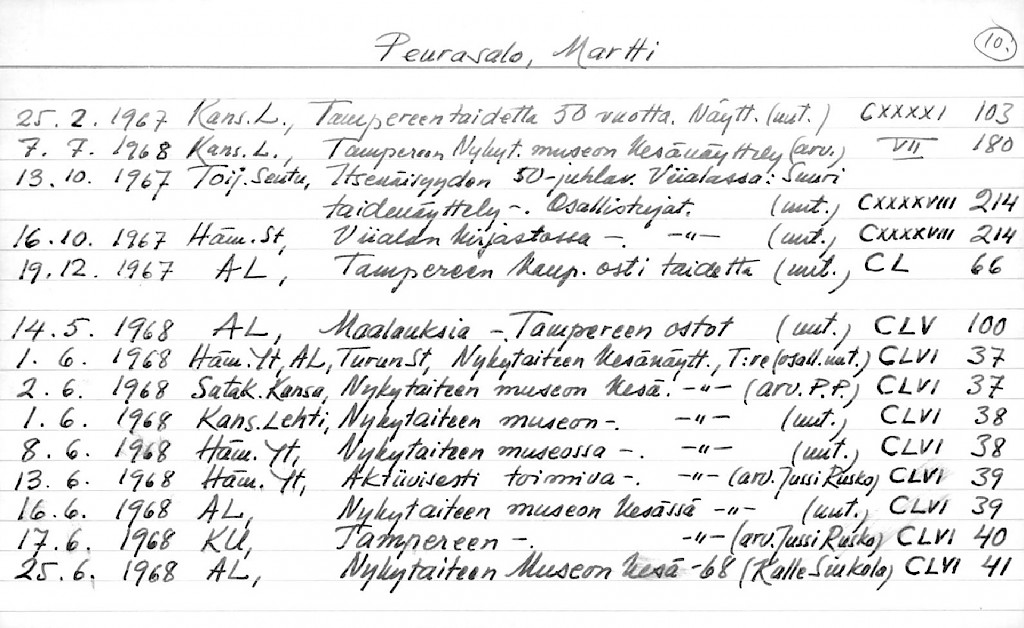 Peurasalo, Martti
10.
25. 2. 1967 Kans. L., Tampereen taidetta 50 vuotta. Näytt. (uut.) CXXXXI 103
7. 7. 1968 Kans. L., Tampereen Nykyt. museon kesänäyttely (arv.) VII 180
13. 10. 1967 Toij. Seutu, Itsenäisyyden 50-juhlav. Viialassa: Suuri
taidenäyttely -. Osallistujat. (uut.) CXXXXVIII 214
16. 10. 1967 Häm. St, Viialan kirjastossa -. -"- (uut., CXXXXVIII 214
19. 12. 1967 AL, Tampereen kaup. osti taidetta (uut.) CL 66
14. 5. 1968 AL, Maalauksia - Tampereen ostot (uut.) CLV 100
1. 6. 1968 Häm. Yt, AL, Turun St, Nykytaiteen kesänäytt., T:re (osall. uut.) CLVI 37
2. 6. 1968 Satak. Kansa, Nykytaiteen museon kesä. -"- (arv. P.P.) CLVI 37
1. 6. 1968 Kans. Lehti, Nykytaiteen museon -. -"- (uut.) CLVI 38
8. 6. 1968 Häm. Yt, Nykytaiteen museossa -. -"- (uut.) CLVI 38
13. 6. 1968 Häm. Yt, Aktiivisesti toimiva -. -"- (arv. Jussi Rusko) CLVI 39
16. 6. 1968 AL, Nykytaiteen museon kesässä -"- (uut., CLVI 39
17. 6. 1968 KU, Tampereen -. -"- (arv. Jussi Rusko) CLVI 40
25. 6. 1968 AL, Nykytaiteen Museon kesä -68 (Kalle Siukola) CLVI 41